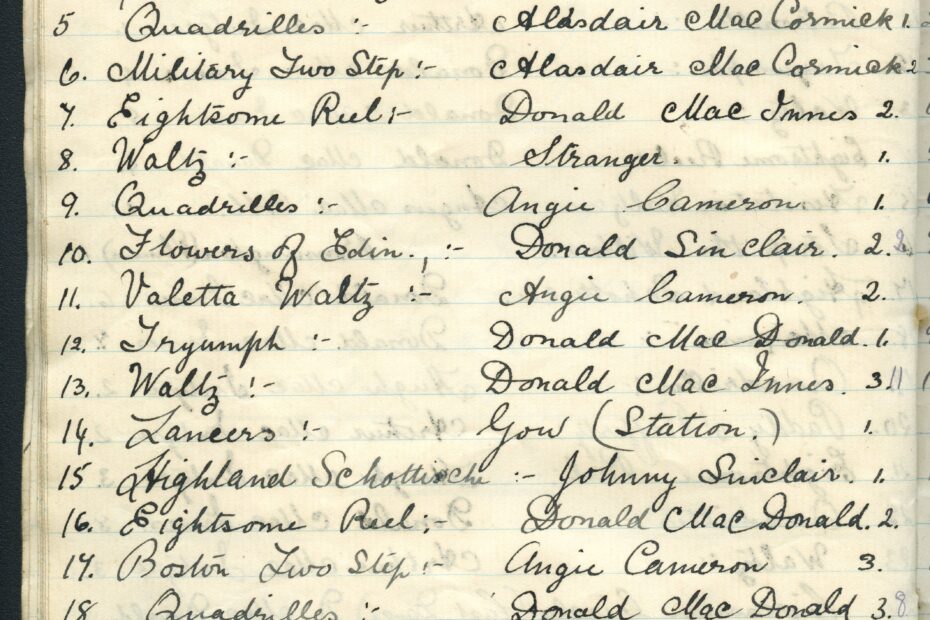 5 Quadrilles :- Alasdair Mac Cormick 1.
6. Military Two Step :- Alasdair Mac Cormick 2
7. Eightsome Reel :- Donald Mac Innes 2.
8. Waltz :- Stranger. 1.
9. Quadrilles :- Angie Cameron. 1.
10. Flowers of Edin., :- Donald Sinclair. 2. 2
11. Valetta Waltz :- Angie Cameron. 2.
12. Tryumph :- Donald Mac Donald. 1.
13. Waltz :- Donald Mac Innes. 3. 11
14. Lancers :- Gow (Station.) 1.
15 Highland Schottische :- Johnny Sinclair. 1.
16. Eightsome Reel :- Donald Mac Donald. 2.
17. Boston Two Step :- Angie Cameron 3.
18 Quadrilles :- Donald Mac Donald 3. 8